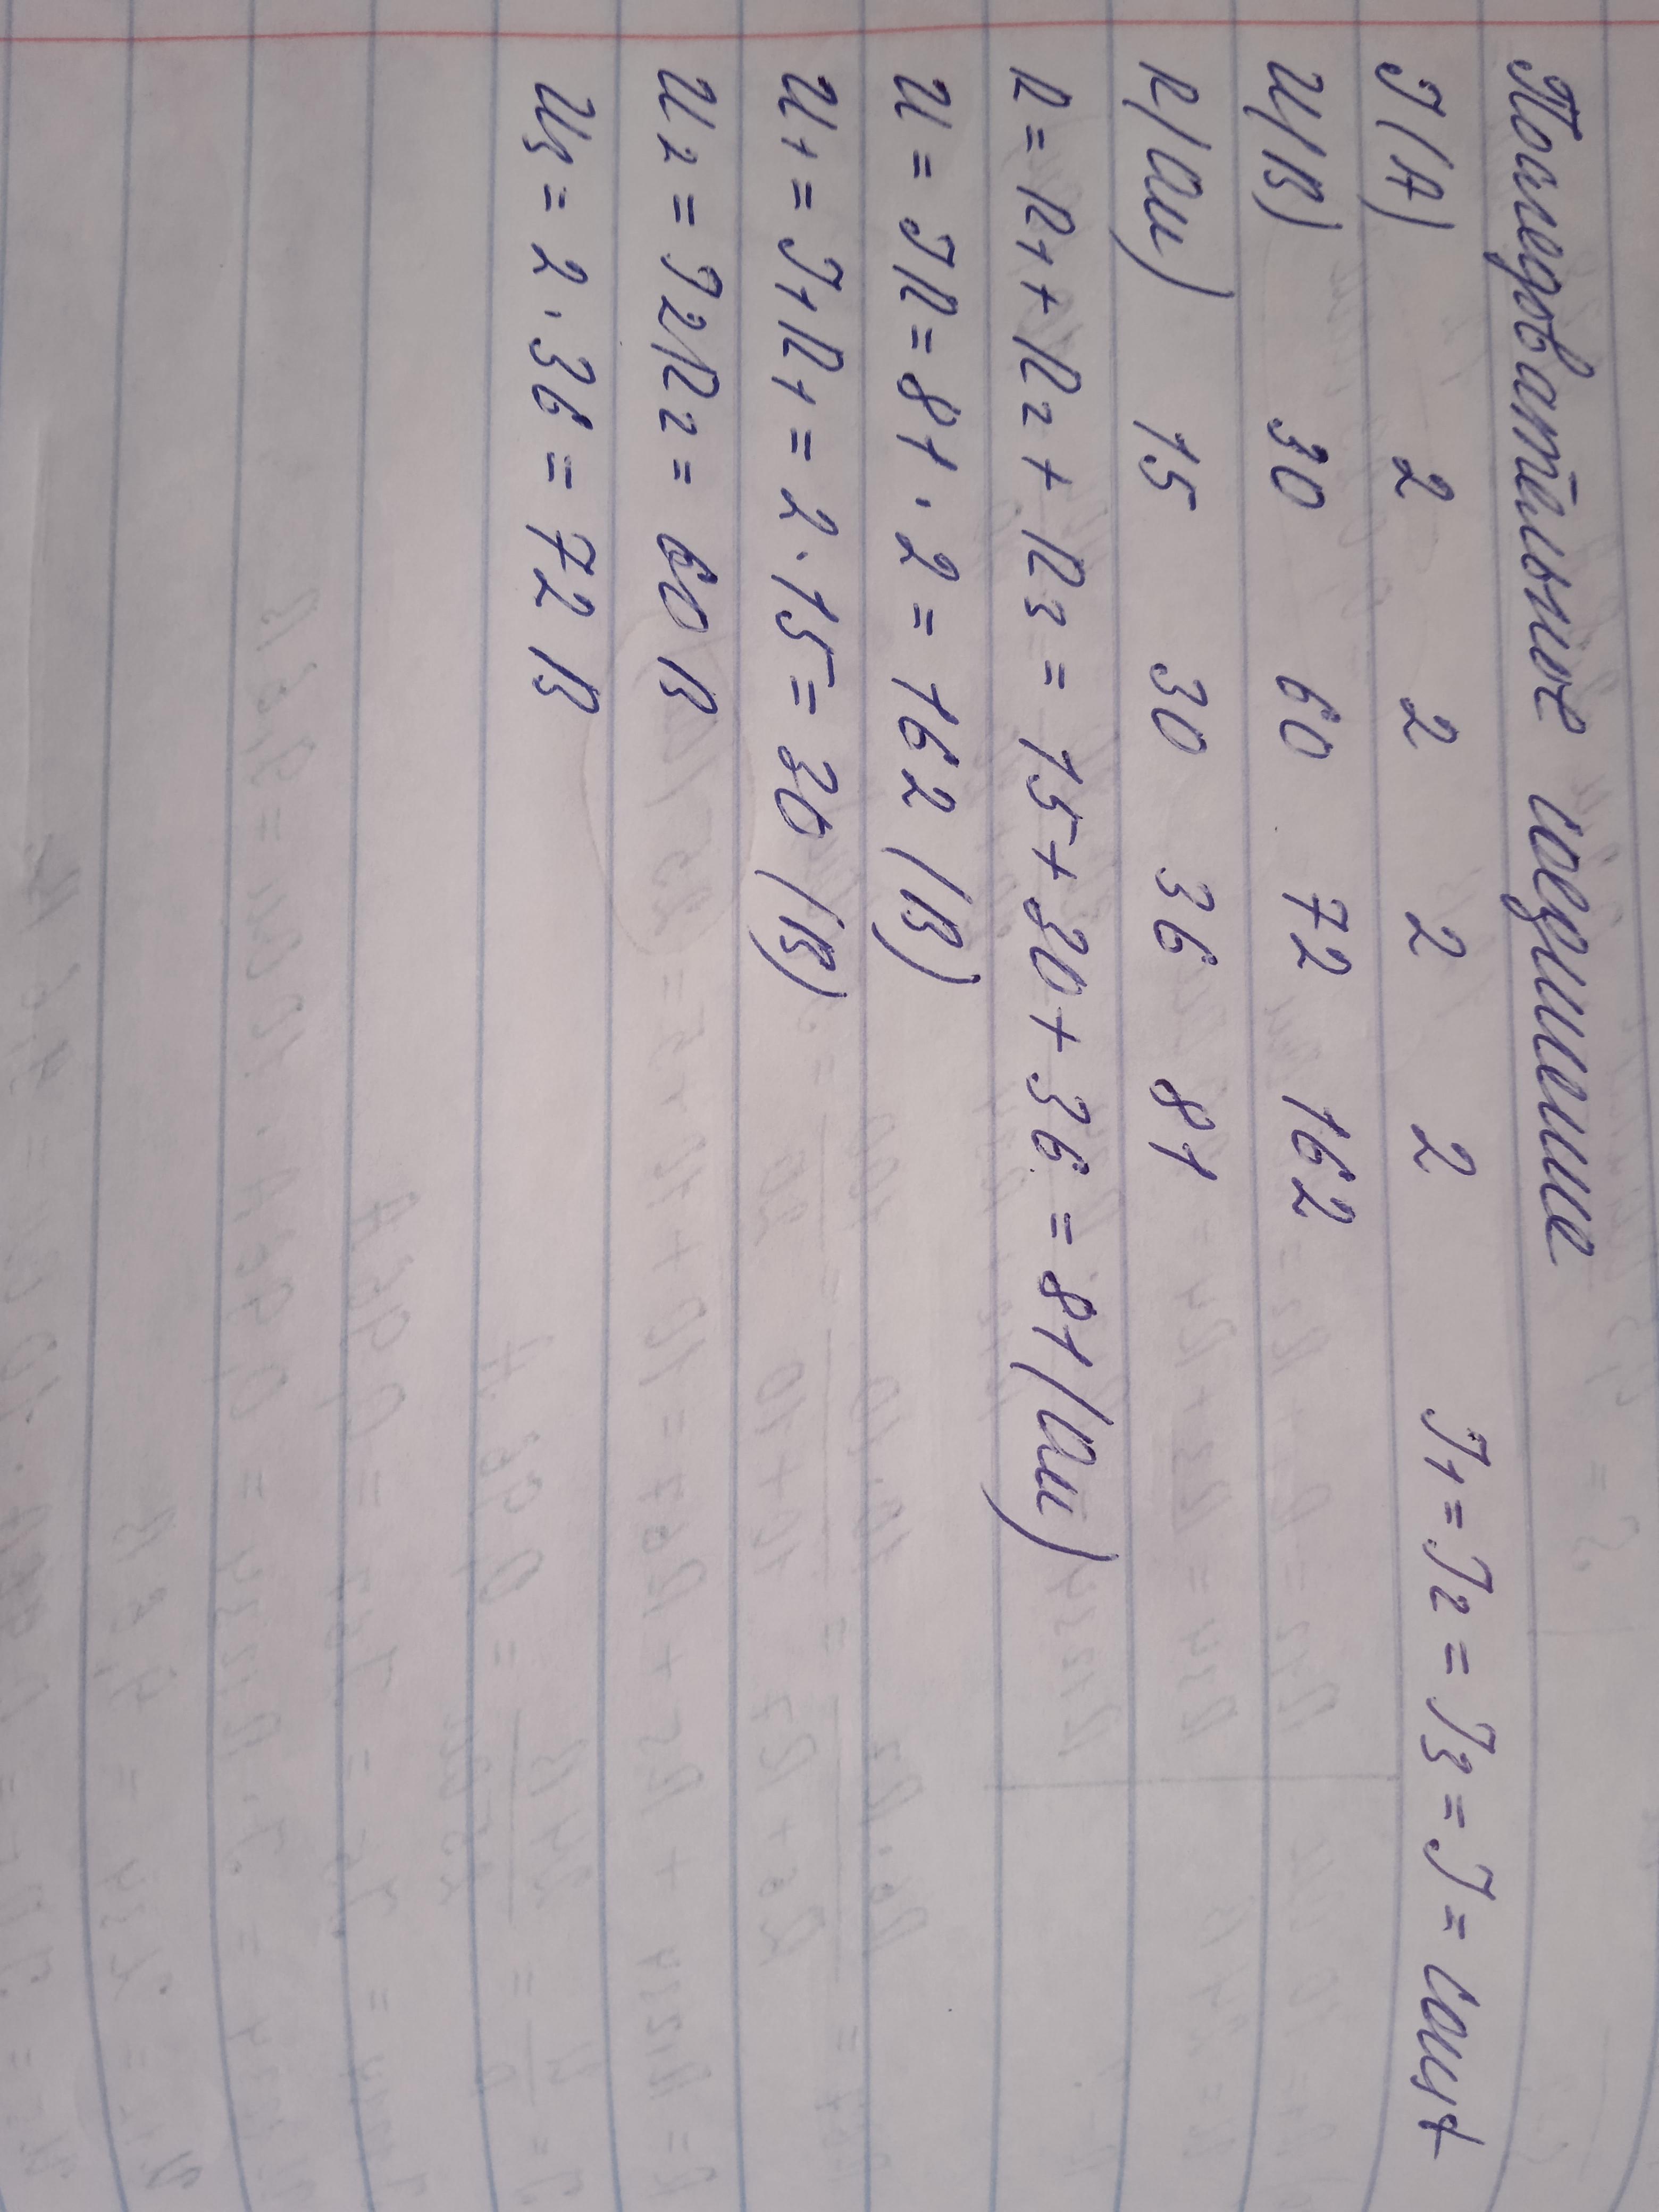 Последовательное соединение
I(A) 2 2 2 2 I1 = I2 = I3 = I = const
U(В) 30 60 72 162
R(Ом) 15 30 36 81
R = R1 + R2 + R3 = 15 + 30 + 36 = 81 (Ом)
U = IR = 81 · 2 = 162 (В)
U1 = I1R1 = 2 · 15 = 30 (В)
U2 = I2R2 = 60 В
U3 = 2 · 36 = 72 В